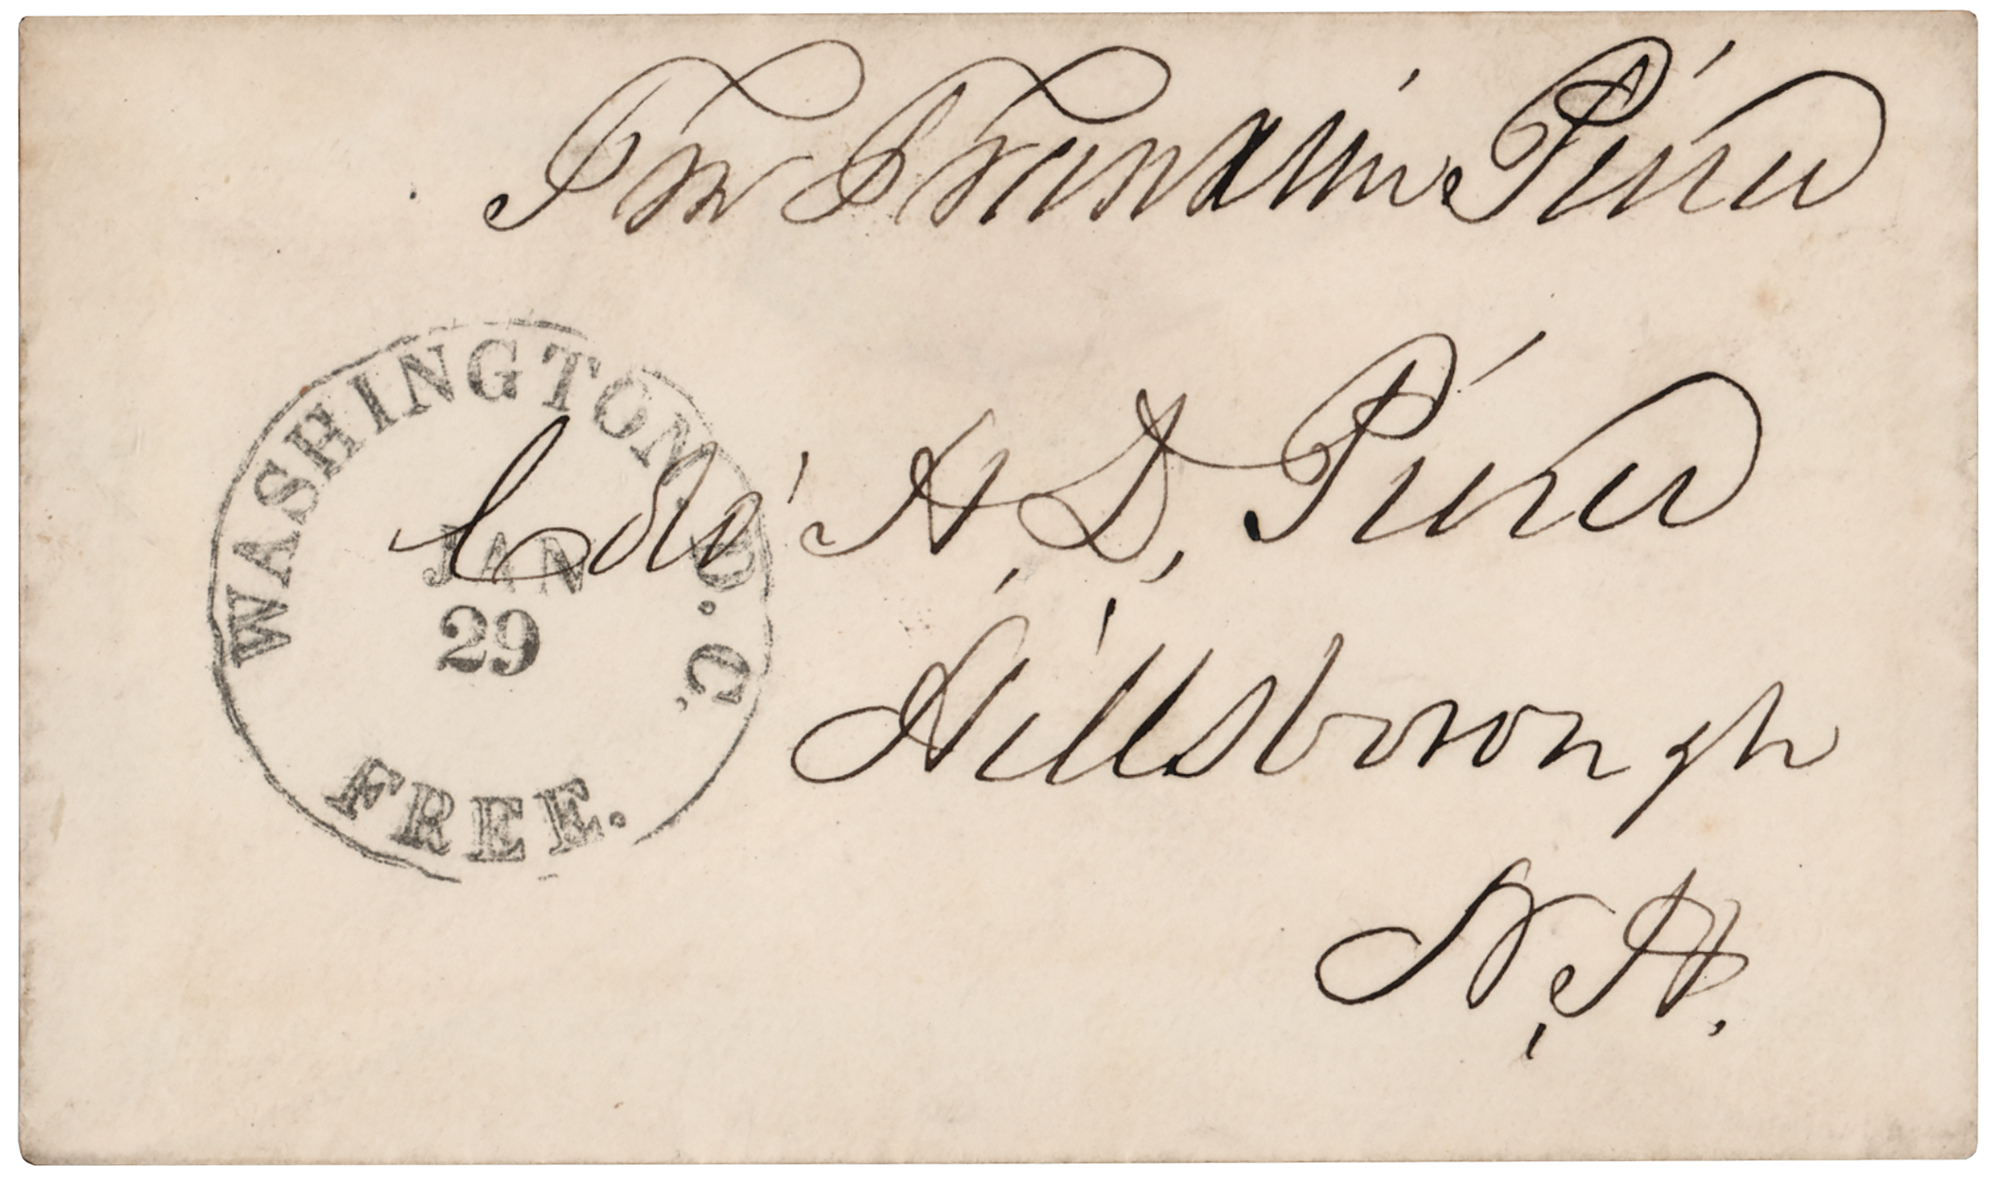 Fr Franklin Pierce
WASHINGTON. D.C.
JAN
29
FREE.
Colo' H, D, Pierce
Hillsborough
N, H.